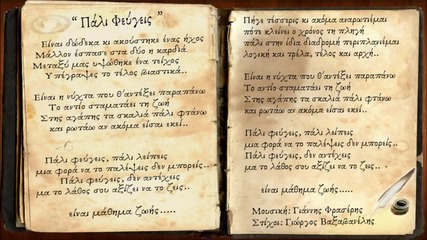 “ Πάλι Φεύγεις ”
Είναι δώδεκα κι ακούστηκε ένας ήχος
Μάλλον έσπασε στα δύο η καρδιά
Μεταξύ μας υψώθηκε ένα τείχος
Υπέγραψες το τέλος βιαστικά..
Είναι η νύχτα που θ'αντέξει παραπάνω
Το αντίο σταματάει τη ζωή
Στης αγάπης τα σκαλιά πάλι φτάνω
και ρωτάω αν ακόμα είσαι εκεί..
Πάλι φεύγεις, πάλι λείπεις
μια φορά να το παλέψεις δεν μπορείς..
Πάλι φεύγεις, δεν αντέχεις
μα το λάθος σου αξίζει να το ζεις..
είναι μάθημα ζωής.....
Πήγε τέσσερις κι ακόμα αναρωτιέμαι
πότε κλείνει ο χρόνος τη πληγή
πάλι στην ίδια διαδρομή περιπλανιέμαι
λογική και τρέλα, τέλος και αρχή..
Είναι η νύχτα που θ'αντέξει παραπάνω
Το αντίο σταματάει τη ζωή
Στης αγάπης τα σκαλιά πάλι φτάνω
και ρωτάω αν ακόμα είσαι εκεί..
Πάλι φεύγεις, πάλι λείπεις
μια φορά να το παλέψεις δεν μπορείς..
Πάλι φεύγεις, δεν αντέχεις
μα το λάθος σου αξίζει να το ζεις..
είναι μάθημα ζωής.....
Μουσική: Γιάννης Φρασέρης
Στίχοι: Γιώργος Βαξαβανέλης